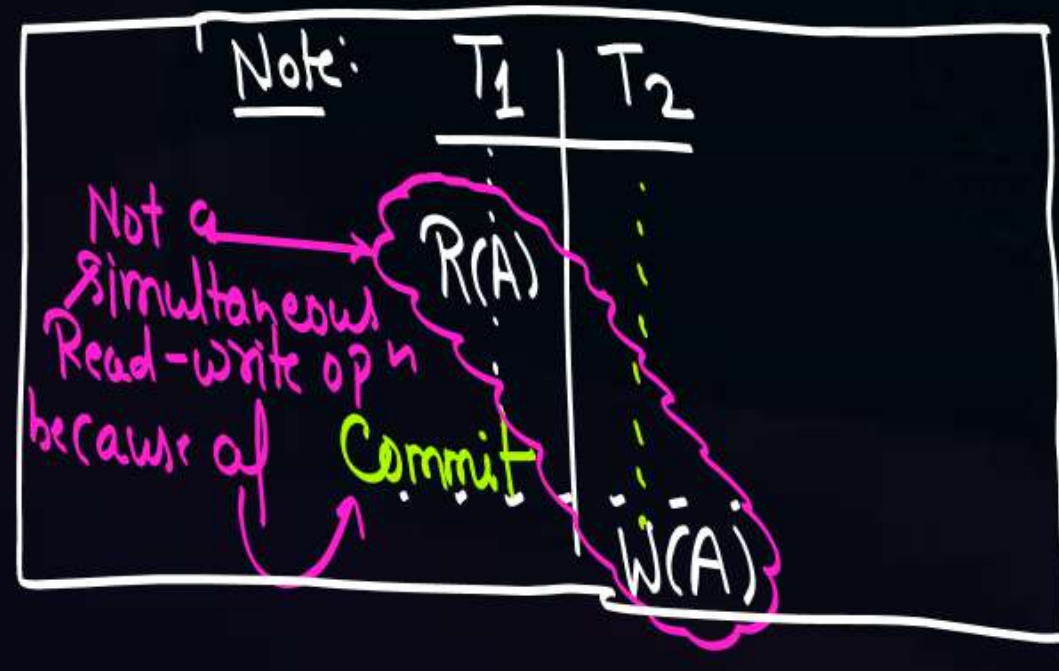 Note: T1 T2
Not a
simultaneous
R(A)
Read-write opn
because of Commit
W(A)